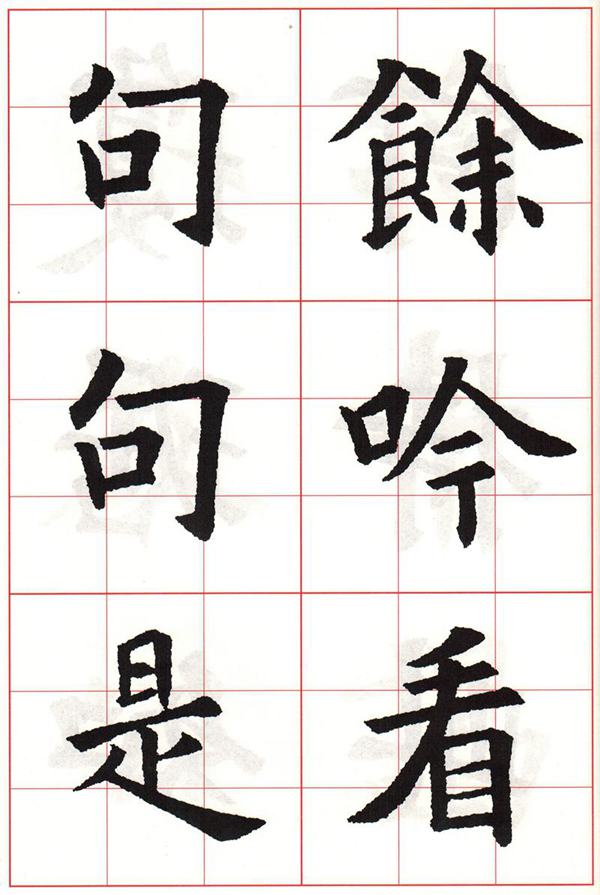 餘吟看
句句是